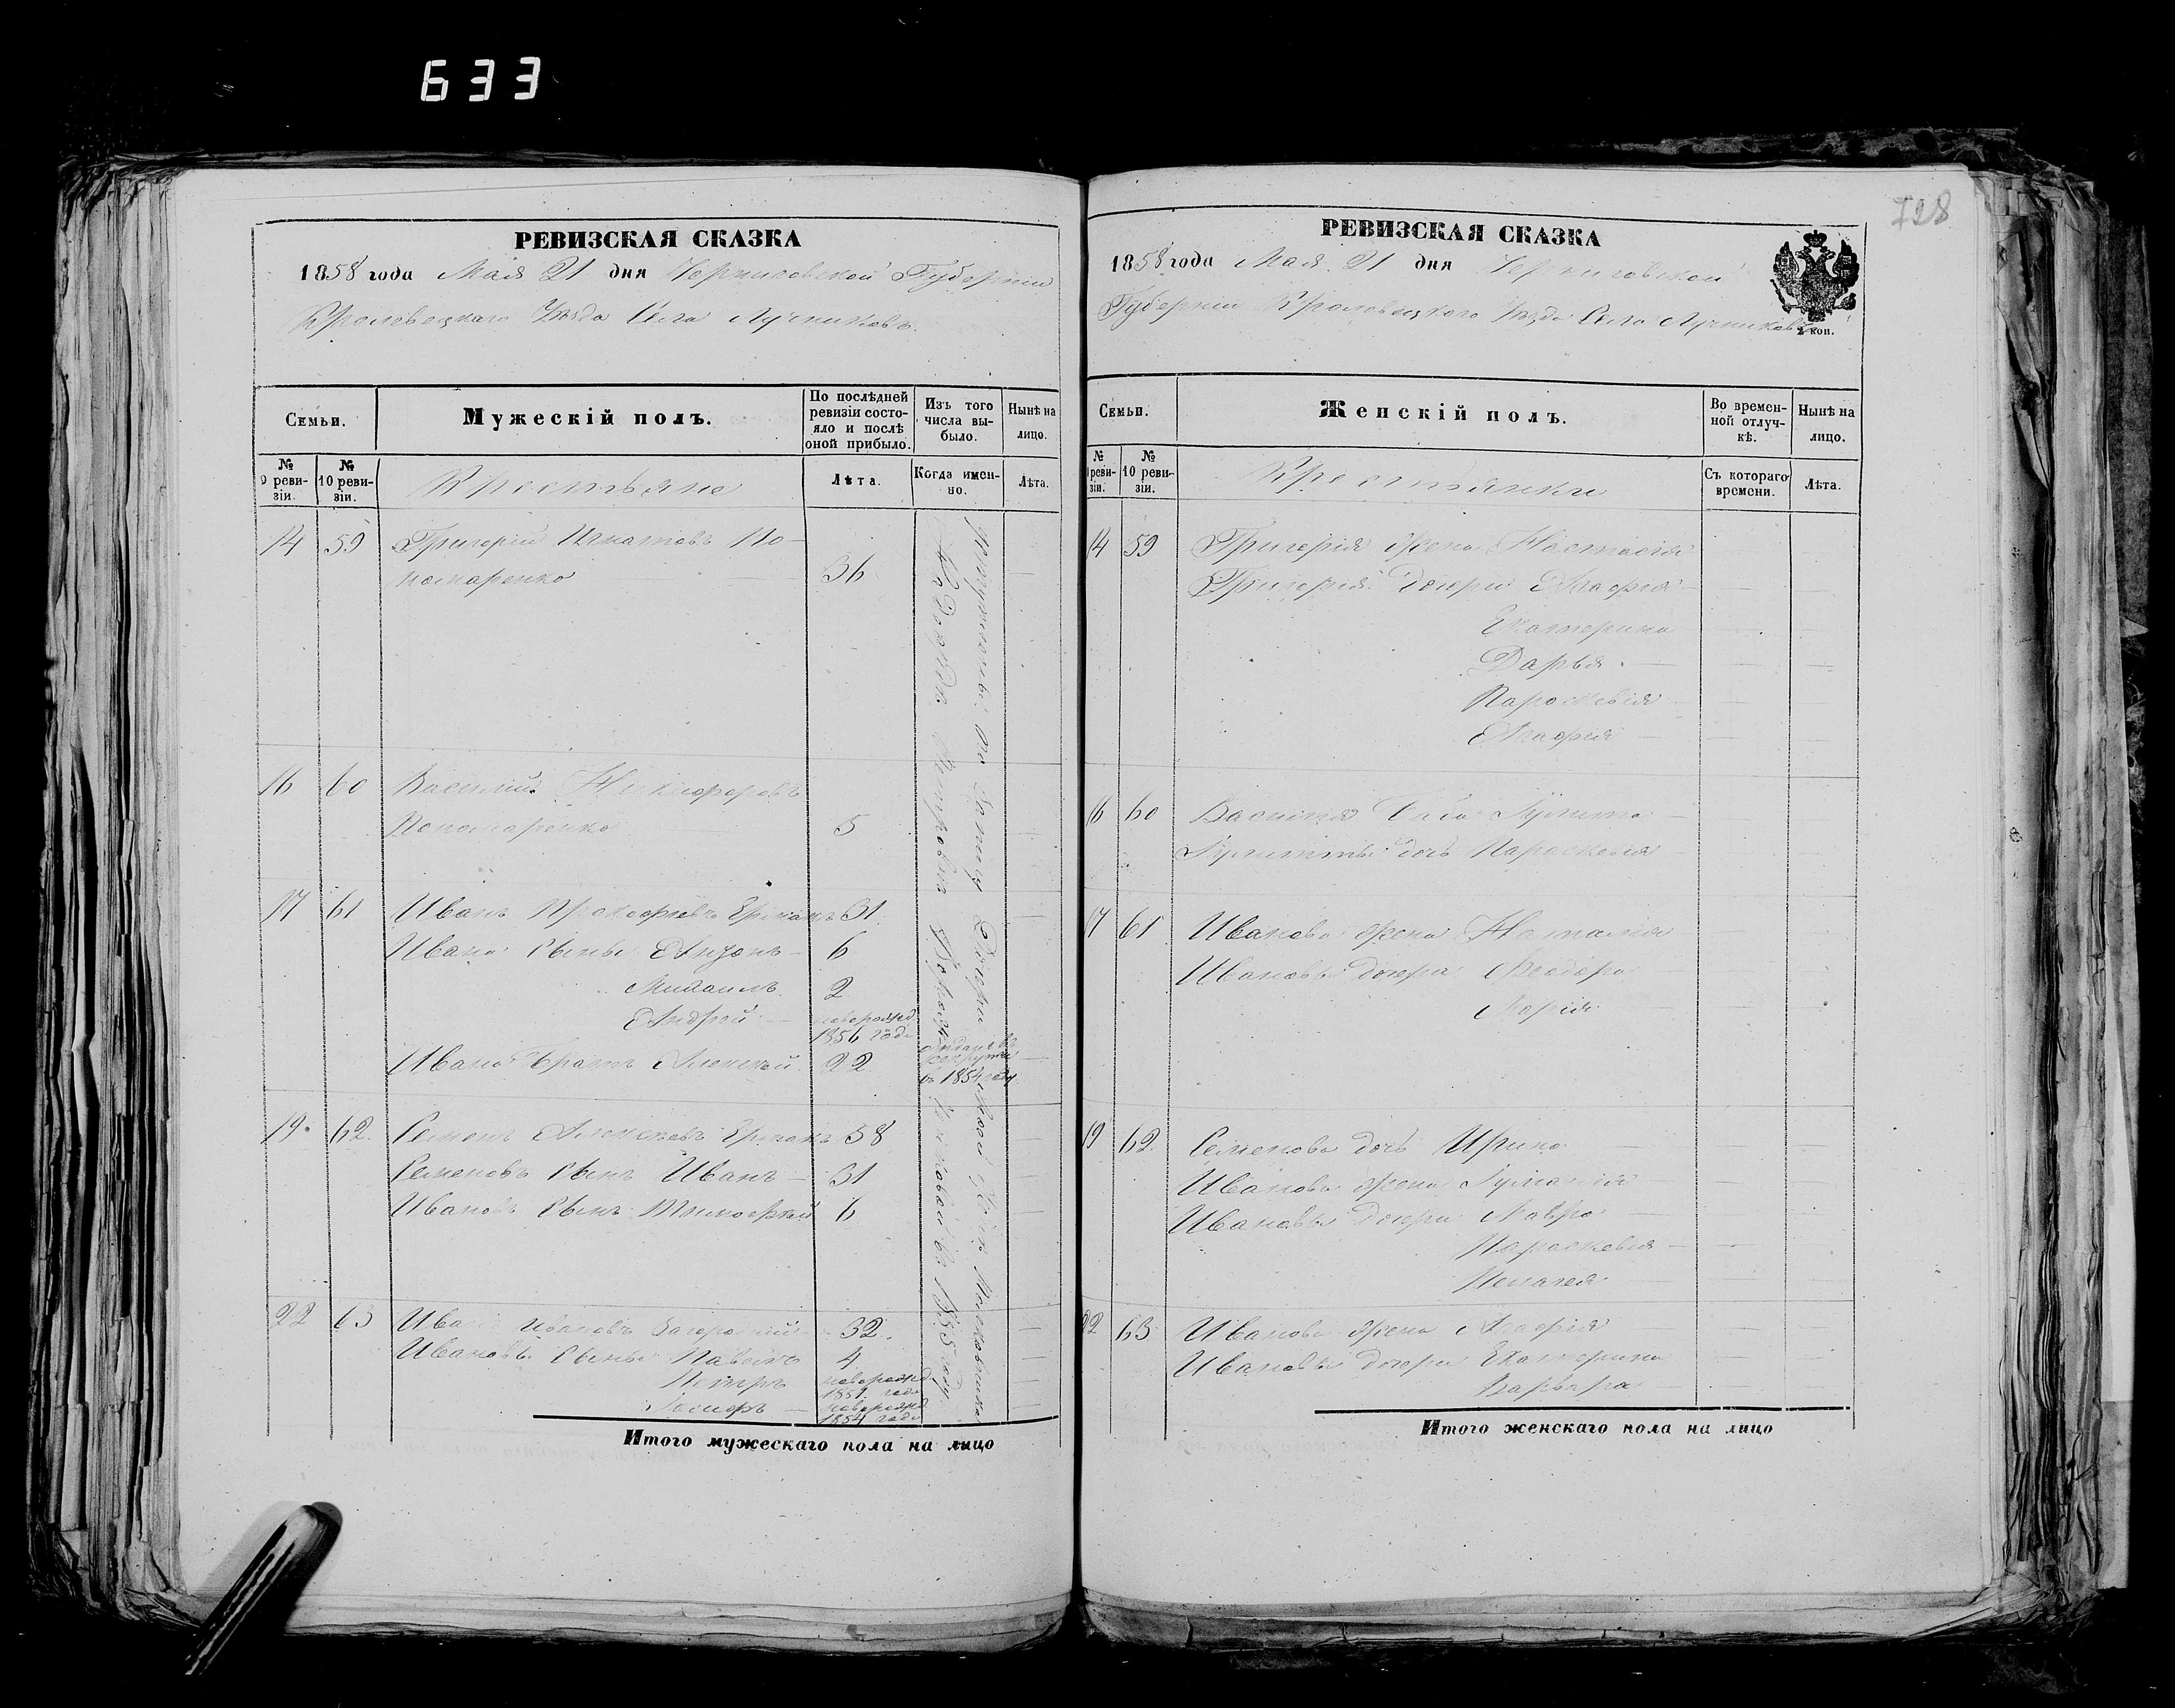 633
РЕВИЗСКАЯ СКАЗКА
1858 года Мая 21 дня Черниговской Губерніи
Кролевецкаго Уѣзда Села Лучниковъ.
Семьи.
Мужескій полъ.
По послѣдней ревизіи состо-
яло и послѣ
оной прибыло.
Изъ того
числа вы-
было.
Нынѣ на
лицо.
№
9 реви-
зіи.
№
10 реви-
зіи.
Крестьяне
Лѣта.
Когда имен-
но.
Лѣта.
14 59 Григорій Игнатовъ По-
номаренко 36
16 60 Василій Никифоровъ
Пономаренко 5
17 61 Иванъ Прокофіевъ Ермакъ 31
Ивана Сыны Антонъ 6
Михаилъ 2
Андрей новорожд.
1856 года
Ивана Братъ Алексѣй 22 отданъ въ
рекруты
въ 1854 году
19. 62. Семенъ Алексѣевъ Ермакъ 58
Семеновъ Сынъ Иванъ 31
Ивановъ Сынъ Тимофѣй 6
22 63 Иванъ Ивановъ 32.
Ивановы Сыны Павелъ 4
Петръ новорожд
1851 года
Іосифъ новорожд
1854 года
въ 1855 году
Итого мужескаго пола на лицо
728
РЕВИЗСКАЯ СКАЗКА
1858 года Мая 21 дня Черниговской
Губерніи Кролевецкаго Уѣзда Села Лучниковъ
2 коп.
Семьи.
Женскій полъ.
Во времен-
ной отлуч-
кѣ.
Нынѣ на
лицо.
№
реви-
зіи.
№
10 реви-
зіи.
Крестьянки
Съ котораго
времени.
Лѣта.
14 59 Григорія жена Настасія
Григорія дочери Агафія
Екатерина
Дарья
Параскевія
Агафія
16 60 Василія баба Улита
дочь Параскевія
17 61 Иванова жена Наталія
Ивановы дочери Феодора
Марія
19 62. Семенова дочь Ирина
Иванова жена
Ивановы дочери Мавра
Параскевія
Пелагея
22 63 Иванова жена Агафія
Ивановы дочери Екатерина
Варвара
Итого женскаго пола на лицо